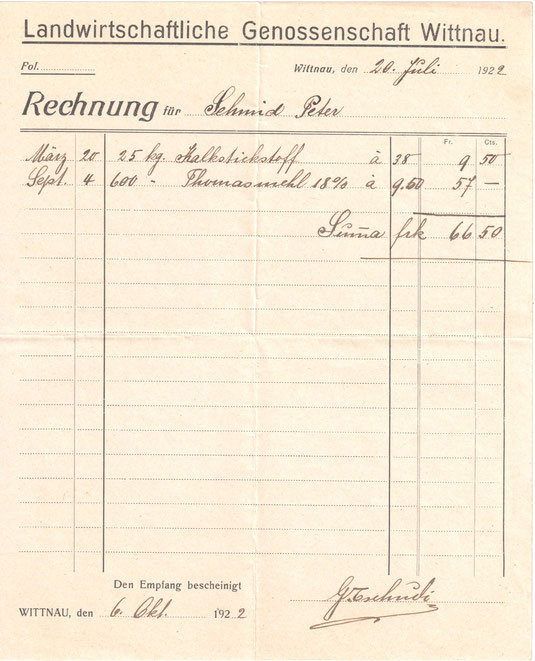 Landwirtschaftliche Genossenschaft Wittnau.
Fol. Wittnau, den 20. Juli 1922
Rechnung für Schmid Peter
Fr. Cts.
März 20 25 kg. Kalkstickstoff à 38 9 50
Sept. 4 600 - Thomasmehl 18% à 9.50 57 —
Suma frk 66 50
Den Empfang bescheinigt
WITTNAU, den 6. Okt. 1922 G. Tschudi